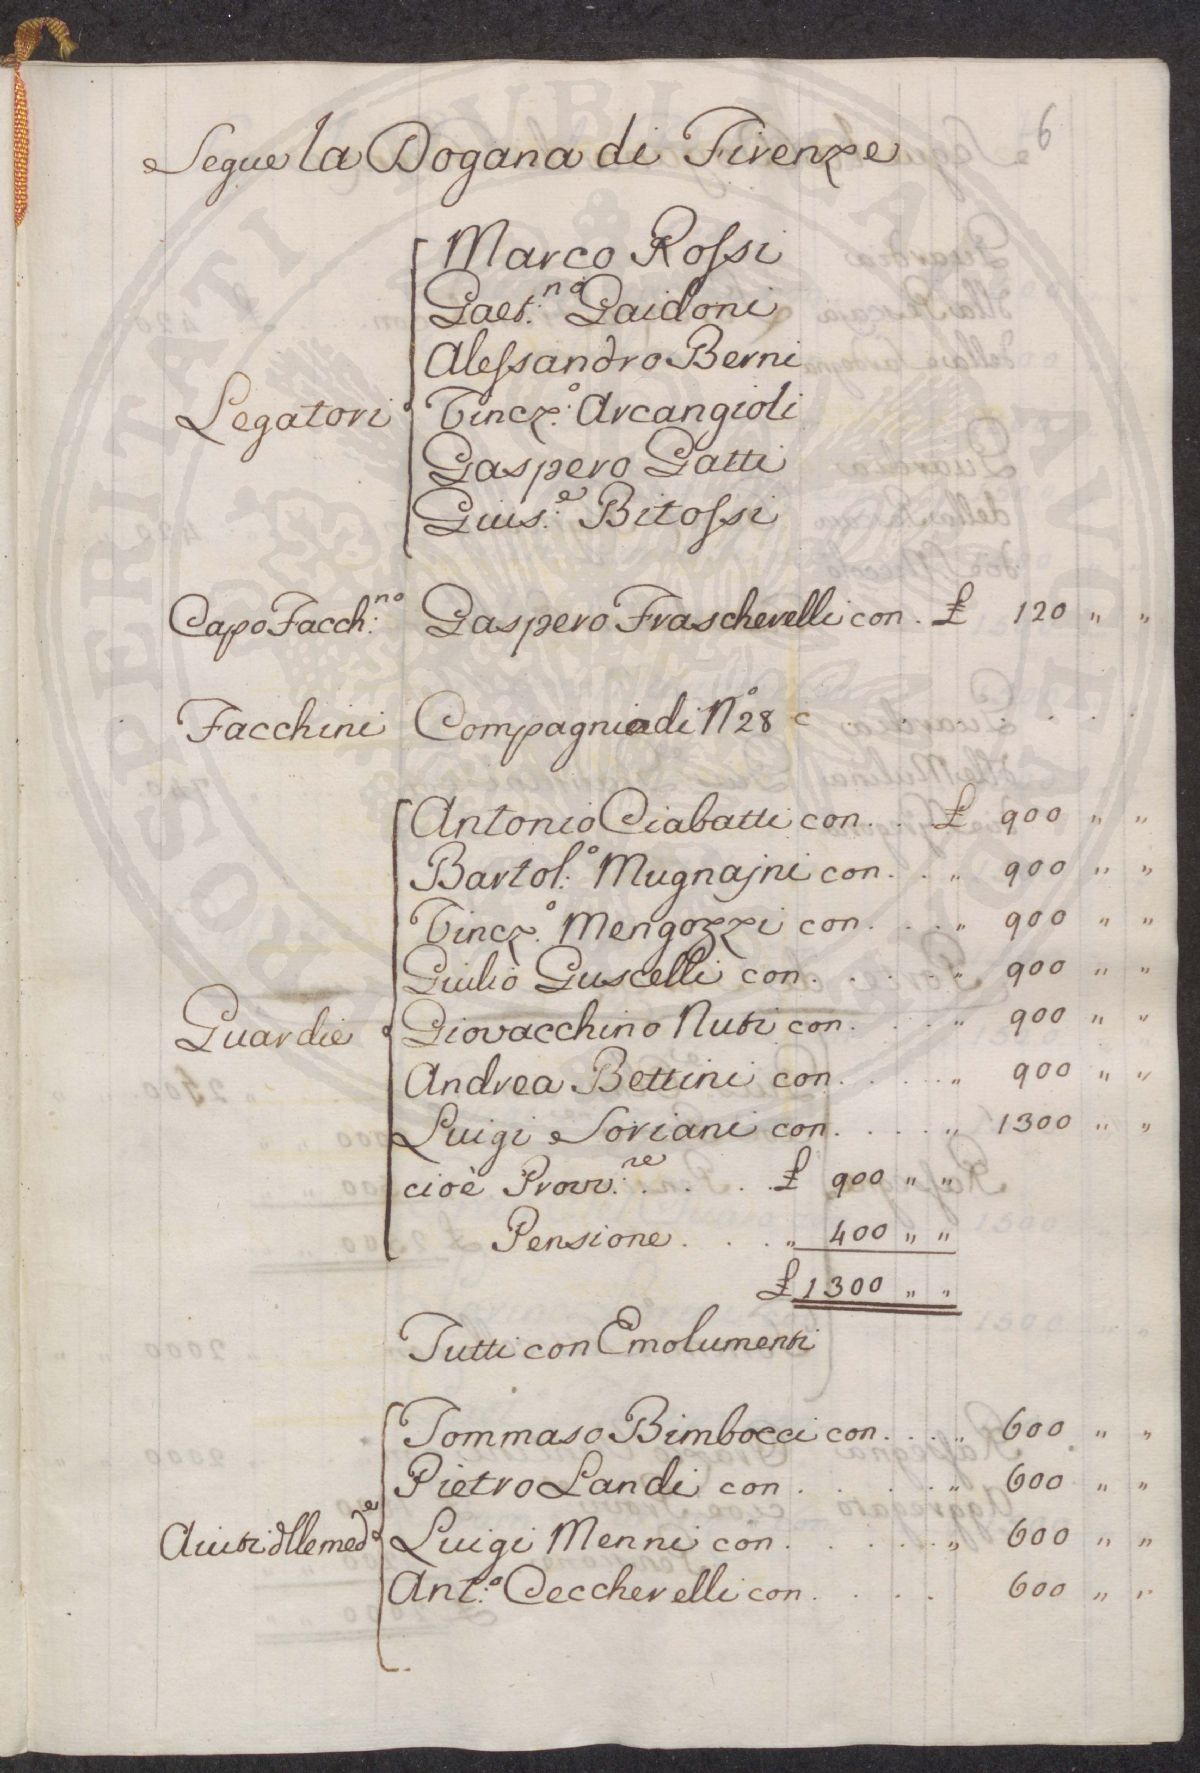 6
Segue la Dogana di Firenze
Marco Rossi
Gaet:no Gaidoni
Alessandro Berni
Legatori Vincz:o Arcangioli
Gaspero Gatti
Gius:e Bitossi
Capo Facch:no Gaspero Frascherelli con . £ 120 " "
Facchini Compagnia di No 28 c . . . . . .
Antonio Ciabatti con . . £ 900 " "
Bartol:o Mugnajni con . . " 900 " "
Vincz:o Mengozzi con . . . " 900 " "
Giulio Guscelli con . . . . . " 900 " "
Guardie Giovacchino Nuti con . . . . " 900 " "
Andrea Bettini con . . . . " 900 " "
Luigi Soriani con . . . . " 1300 " "
cioè Provv:ne . . . . £ 900 " "
Pensione . . . " 400 " "
£ 1300 " "
Tutti con Emolumenti
Tommaso Bimbocci con . . . " 600 " "
Pietro Landi con . . . . . " 600 " "
Aiuti dlle mede Luigi Menni con . . . . . " 600 " "
Ant:o Ceccherelli con . . . . 600 " "
PROSPERITATI PUBLICAE